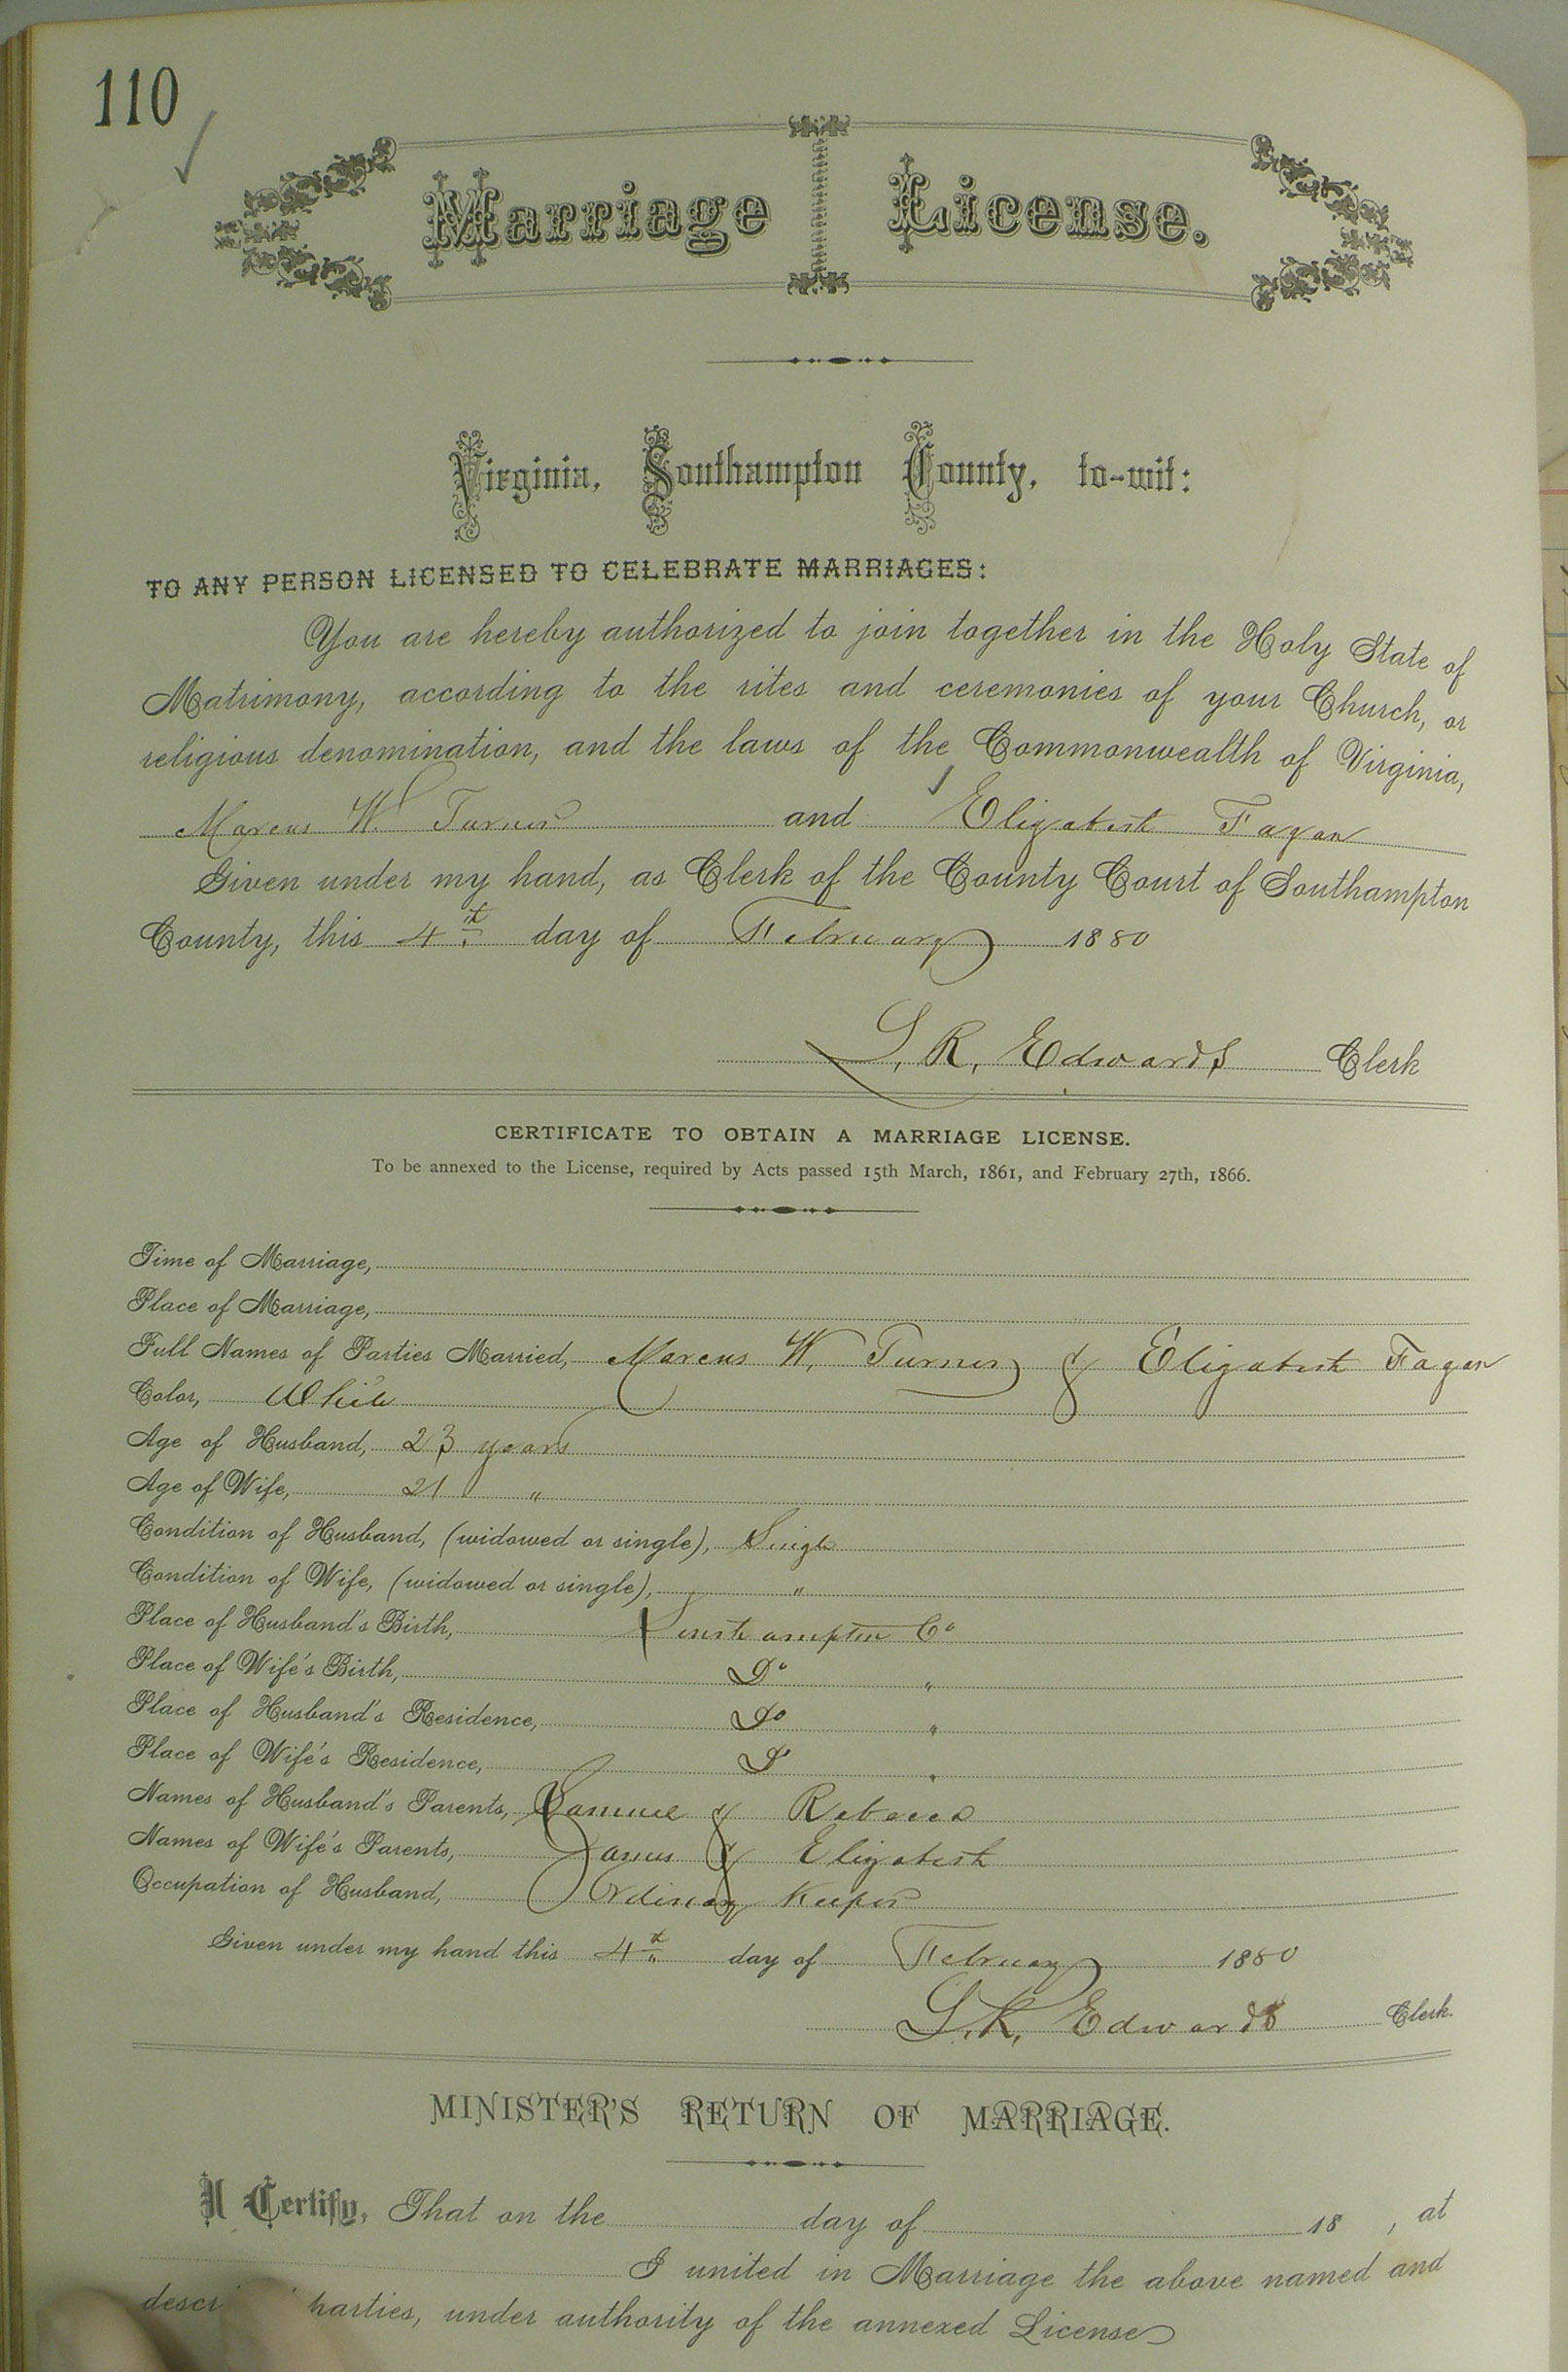 110
Marriage License.
Virginia, Southampton County, to-wit:
TO ANY PERSON LICENSED TO CELEBRATE MARRIAGES:
You are hereby authorized to join together in the Holy State of
Matrimony, according to the rites and ceremonies of your Church, or
religious denomination, and the laws of the Commonwealth of Virginia,
Marcus W. Turner and Elizabeth Fagan
Given under my hand, as Clerk of the County Court of Southampton
County, this 4th day of February 1880
L. R. Edwards Clerk
CERTIFICATE TO OBTAIN A MARRIAGE LICENSE.
To be annexed to the License, required by Acts passed 15th March, 1861, and February 27th, 1866.
Time of Marriage,
Place of Marriage,
Full Names of Parties Married, Marcus W. Turner & Elizabeth Fagan
Color, White
Age of Husband, 23 years
Age of Wife, 21 "
Condition of Husband, (widowed or single), Single
Condition of Wife, (widowed or single), "
Place of Husband's Birth, Southampton Co
Place of Wife's Birth, Do "
Place of Husband's Residence, Do "
Place of Wife's Residence, Do "
Names of Husband's Parents, Samuel & Rebecca
Names of Wife's Parents, James & Elizabeth
Occupation of Husband, Ordinary Keeper
Given under my hand this 4th day of February 1880
L. R. Edwards Clerk.
MINISTER'S RETURN OF MARRIAGE.
I Certify, That on the day of 18 , at
I united in Marriage the above named and
descr parties, under authority of the annexed License